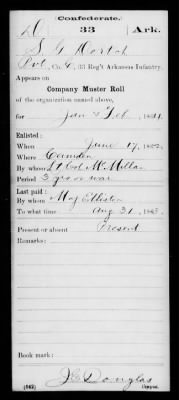 Confederate.
D 33 Ark.
S. G. Dortch
Pvt, Co. G, 33 Reg't Arkansas Infantry.
Appears on
Company Muster Roll
of the organization named above,
for Jan & Feb, 1864.
Enlisted:
When June 17, 1862.
Where Camden
By whom Lt Col McMillan
Period 3 yrs or war
Last paid:
By whom Maj Elliston
To what time Aug 31, 1863.
Present or absent Present
Remarks:
Book mark:
J. E. Douglas
(642) Copyist.